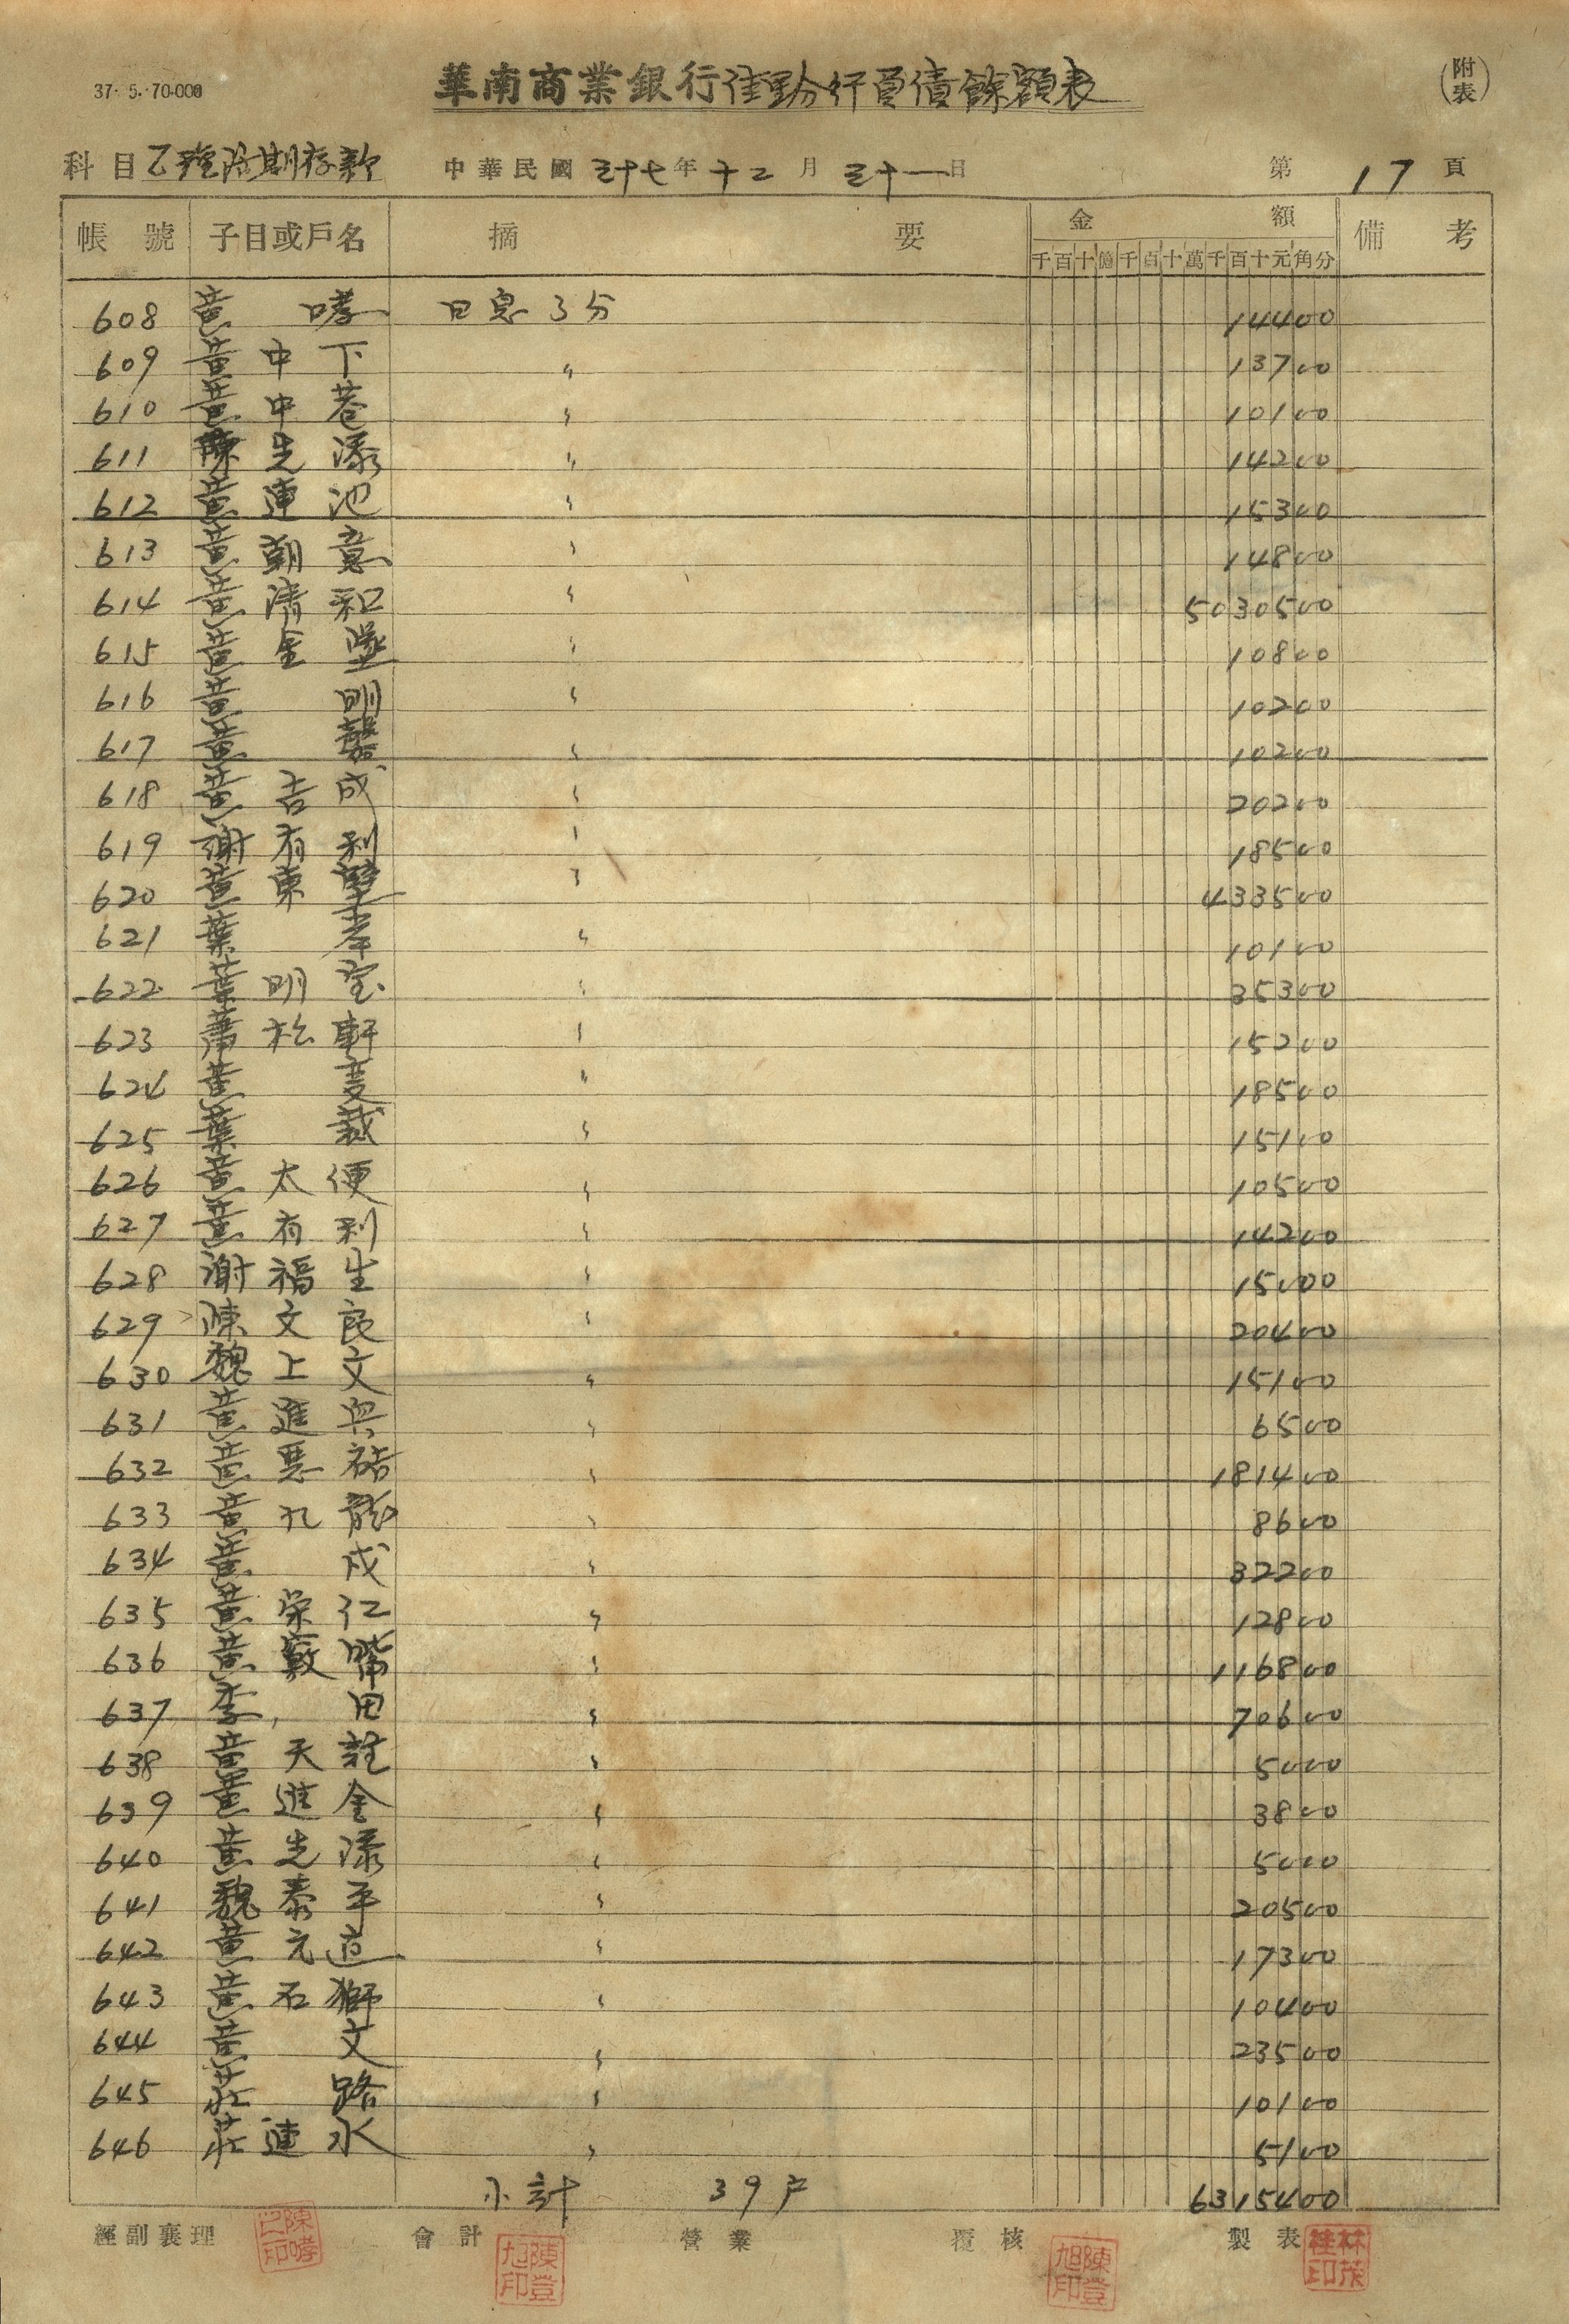 37. 5. 70.000
華南商業銀行佳里分行負債餘額表
(附表)
科目 乙種活期存款 中華民國 三十七 年 十二 月 三十一 日 第 17 頁
帳號 子目或戶名 摘要 金額 備考
千百十億千百十萬千百十元角分
608 黃 哮 日息 3分 14400
609 黃中下 〃 13700
610 黃中巷 〃 10100
611 陳先添 〃 14200
612 黃連池 〃 15300
613 黃朝意 〃 14800
614 黃清和 〃 5030500
615 黃金墜 〃 10800
616 黃 明 〃 10200
617 黃 馨 〃 10200
618 黃吉成 〃 20200
619 謝有利 〃 18500
620 黃東壁 〃 433500
621 葉 孝 〃 10100
622 葉明宝 〃 35300
623 蕭松軒 〃 15200
624 黃 变 〃 18500
625 葉 裁 〃 15100
626 黃太便 〃 10500
627 黃有利 〃 14200
628 謝福生 〃 15000
629 陳文良 〃 20400
630 魏上文 〃 15100
631 黃進興 〃 6500
632 黃 〃 181400
633 黃九龍 〃 8600
634 黃 成 〃 32200
635 黃榮仁 〃 12800
636 黃 嘴 〃 116800
637 李 田 〃 70600
638 黃天註 〃 5000
639 黃進金 〃 3800
640 黃先添 〃 5000
641 魏泰平 〃 20500
642 黃元道 〃 17300
643 黃石獅 〃 10400
644 黃 文 〃 23500
645 莊 路 〃 10100
646 莊連水 〃 5100
小計 39户 6315400
經副襄理 會計 營業 覆核 製表
陳哮印
陳登旭印
陳登旭印
林茂桂印